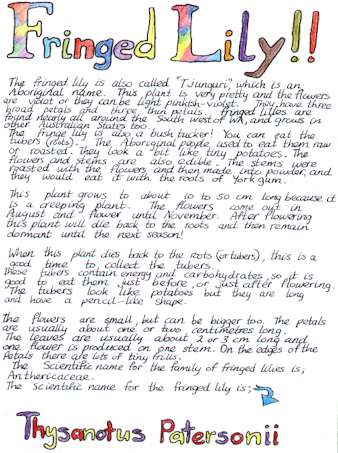 Fringed Lily!!
The fringed lily is also called "Tjunguri" which is an
Aboriginal name. This plant is very pretty and the flowers
are violet or they can be light pinkish-violet. They have three
broad petals and three thin petals. Fringed lillies are
found nearly all around the South west of WA, and grows in
other Australian States too.
The fringe lily is also a bush tucker! You can eat the
tubers (roots). The Aboriginal people used to eat them raw
or roasted. They look a bit like tiny potatoes. The
flowers and stems are also edible. The stems were
roasted with the flowers and then made into powder, and
they would eat it with the roots of York gum.
This plant grows to about 10 to 50 cm long because it
is a creeping plant. The flowers come out in
August and flower until November. After flowering
this plant will die back to the roots and then remain
dormant until the next season!
When this plant dies back to the roots (or tubers), this is a
good time to collect the tubers.
these tubers contain energy and carbohydrates so it is
good to eat them just before, or just after flowering.
The tubers look like potatoes but they are long
and have a pencil-like shape.
The flowers are small but can be bigger too. The petals
are usually about one or two centimetres long.
The leaves are usually about 2 or 3 cm long and
one flower is produced on one stem. On the edges of the
Petals there are lots of tiny frills.
The Scientific name for the family of fringed lilies is;
Anthericaceae.
The Scientific name for the fringed lily is;
Thysanotus Patersonii